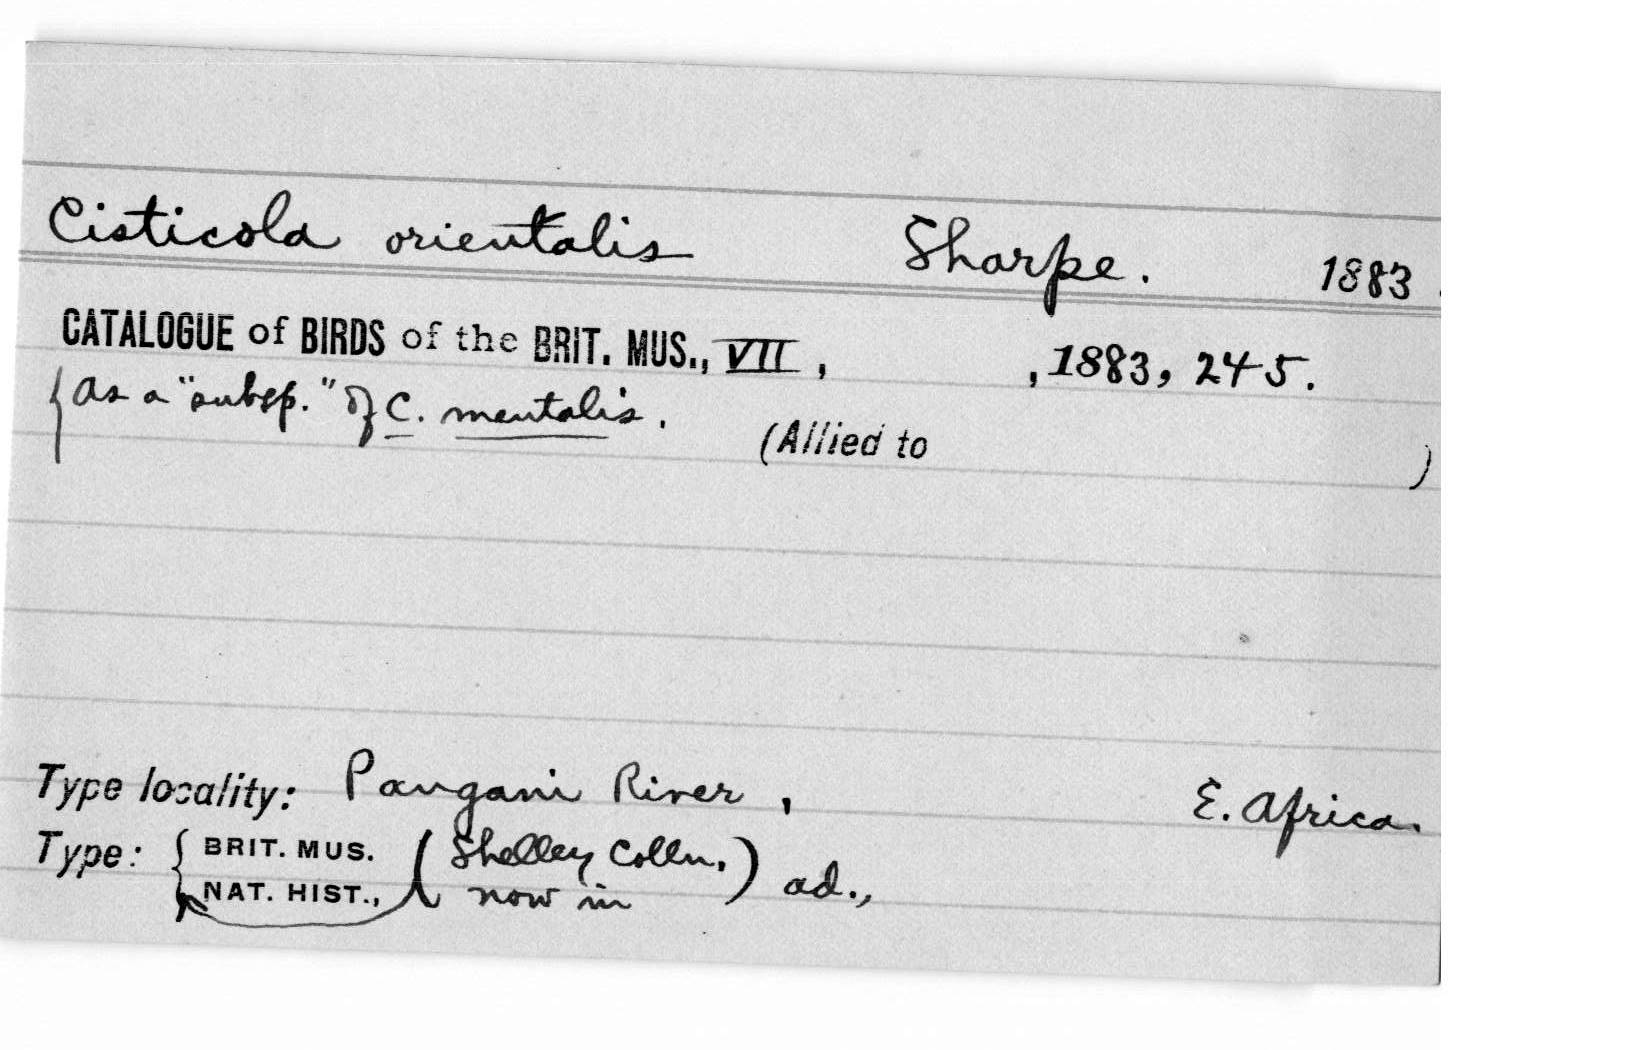 Cisticola orientalis Sharpe. 1883.
CATALOGUE of BIRDS of the BRIT. MUS., VII, , 1883, 245.
{ as a "subsp." of C. mentalis.
(Allied to )
Type locality: Pangani River, E. Africa.
Type: { BRIT. MUS. ( Shelley Colln. ) ad.,
NAT. HIST., now in